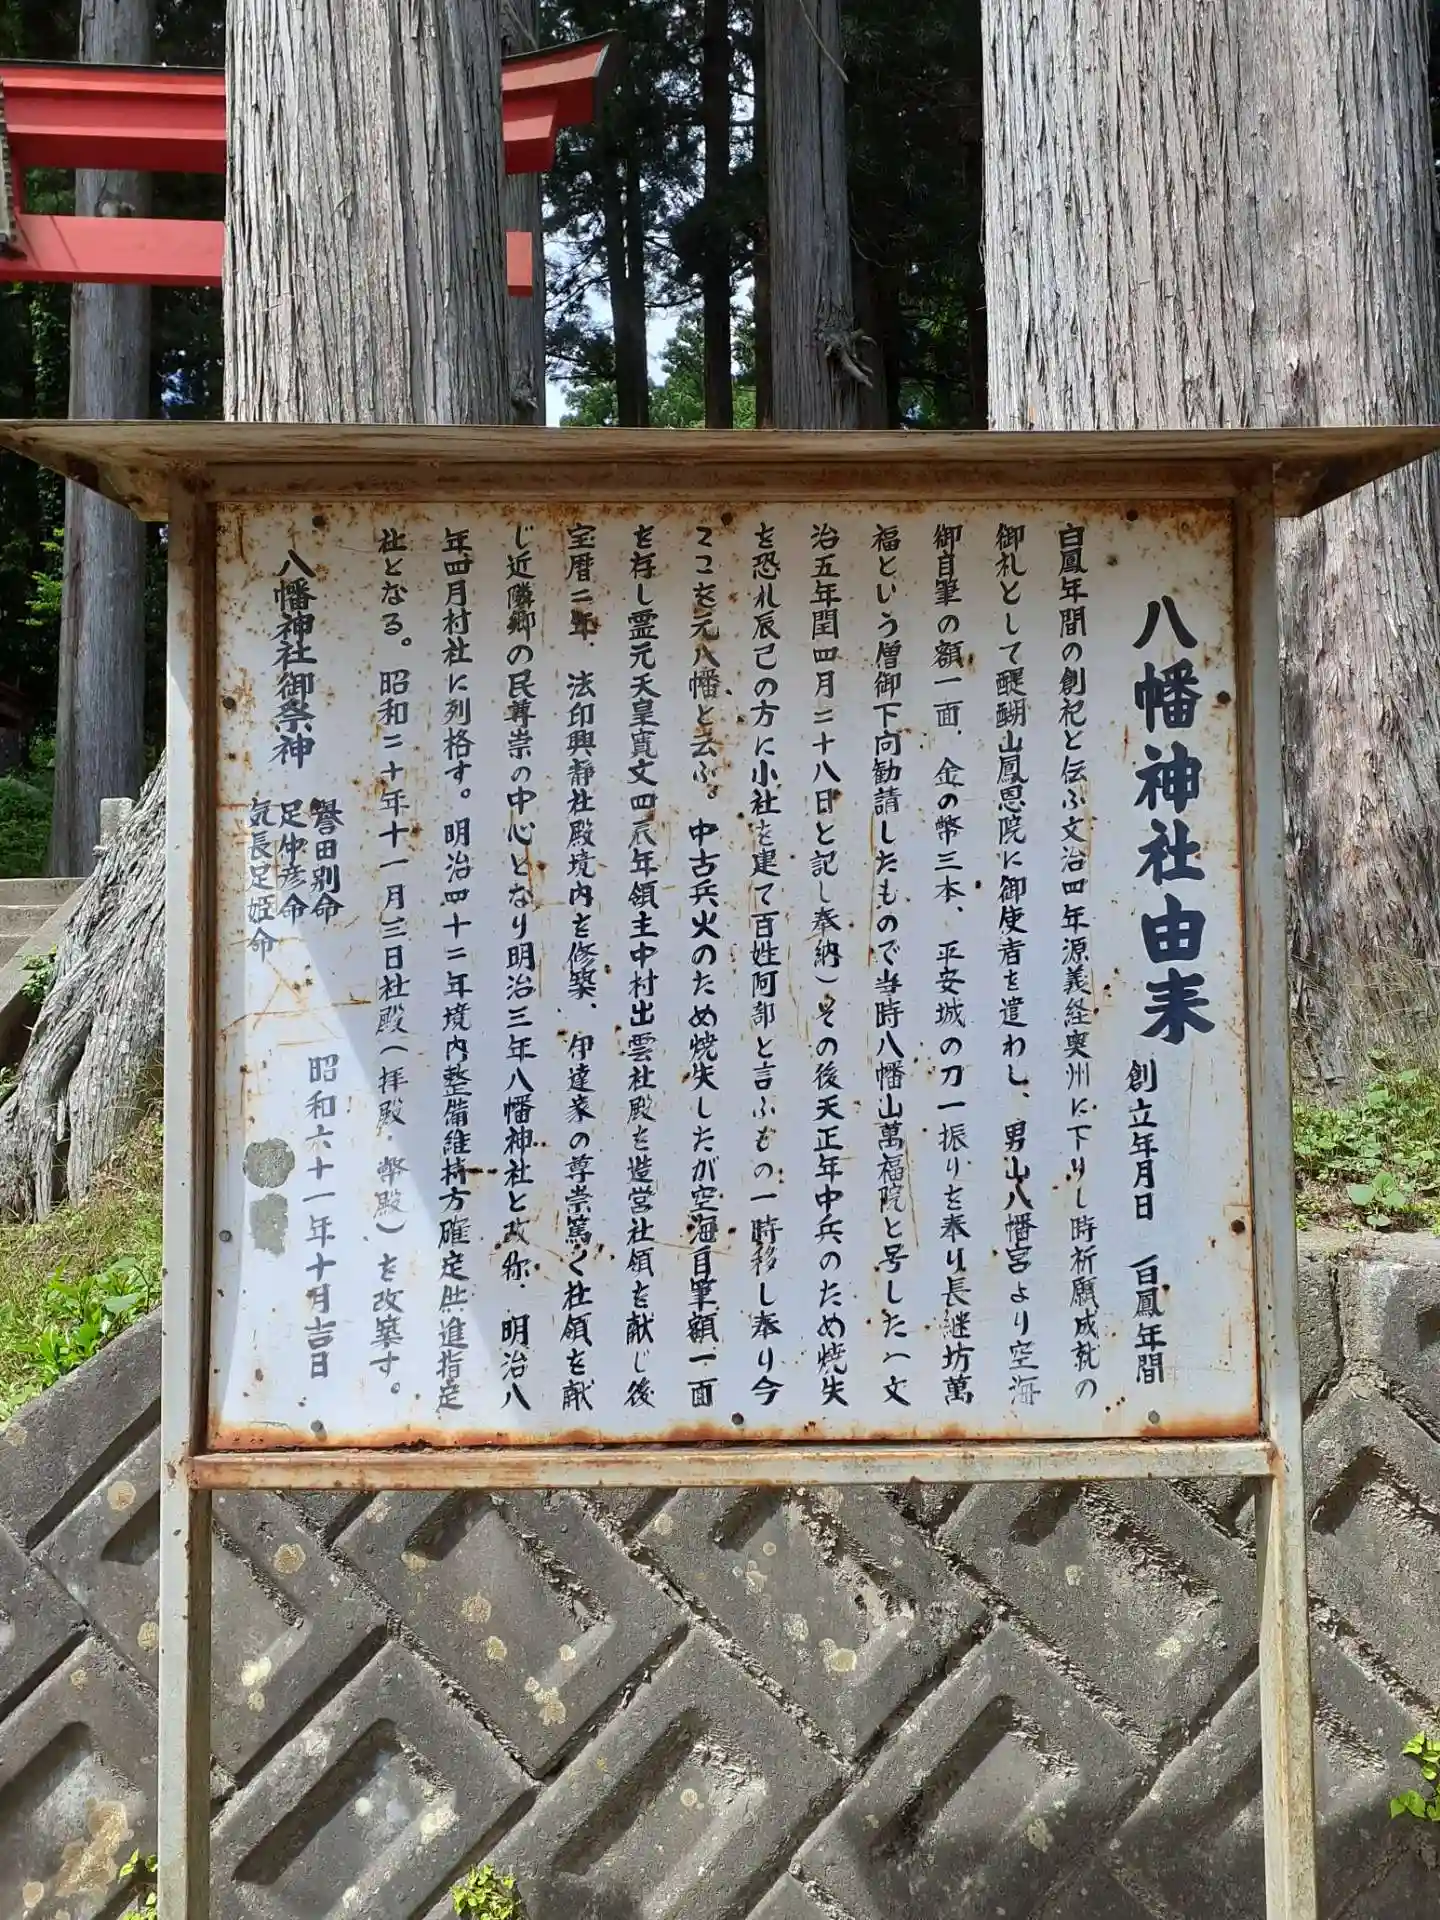 八幡神社由来
創立年月日 白鳳年間
白鳳年間の創祀と伝ふ文治四年源義経奥州に下りし時祈願成就の
御礼として醍醐山鳳恩院に御使者を遣わし、男山八幡宮より空海
御自筆の額一面、金の幣三本、平安城の刀一振りを奉り長継坊萬
福という僧御下向勧請したもので当時八幡山萬福院と号した(文
治五年閏四月二十八日と記し奉納)その後天正年中兵のため焼失
を恐れ辰己の方に小社を建て百姓阿部と言ふもの一時移し奉り今
ここを元八幡と云ふ。中古兵火のため焼失したが空海自筆額一面
を存し霊元天皇寛文四辰年領主中村出雲社殿を造営社領を献じ後
宝暦二年、法印興静社殿境内を修築、伊達家の尊崇篤く社領を献
じ近隣郷の民尊崇の中心となり明治三年八幡神社と改称、明治八
年四月村社に列格す。明治四十二年境内整備維持方確定昇進指定
社となる。昭和二十年十一月三日社殿(拝殿・幣殿)を改築す。
八幡神社御祭神
譽田別命
足仲彦命
気長足姫命
昭和六十一年十月吉日